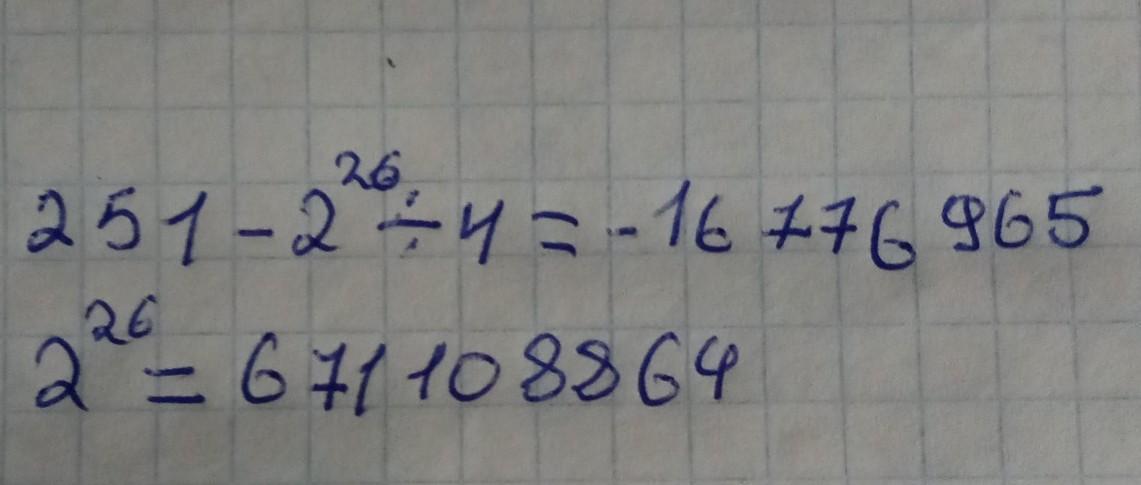 251 - 2²⁶ ÷ 4 = -16 776 965
2²⁶ = 671108864